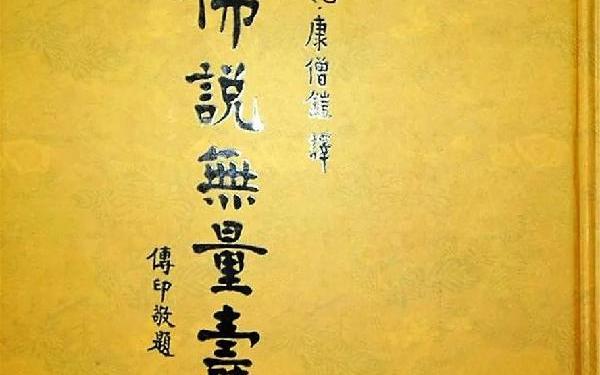 康僧鎧譯
佛說無量壽
傳印敬題